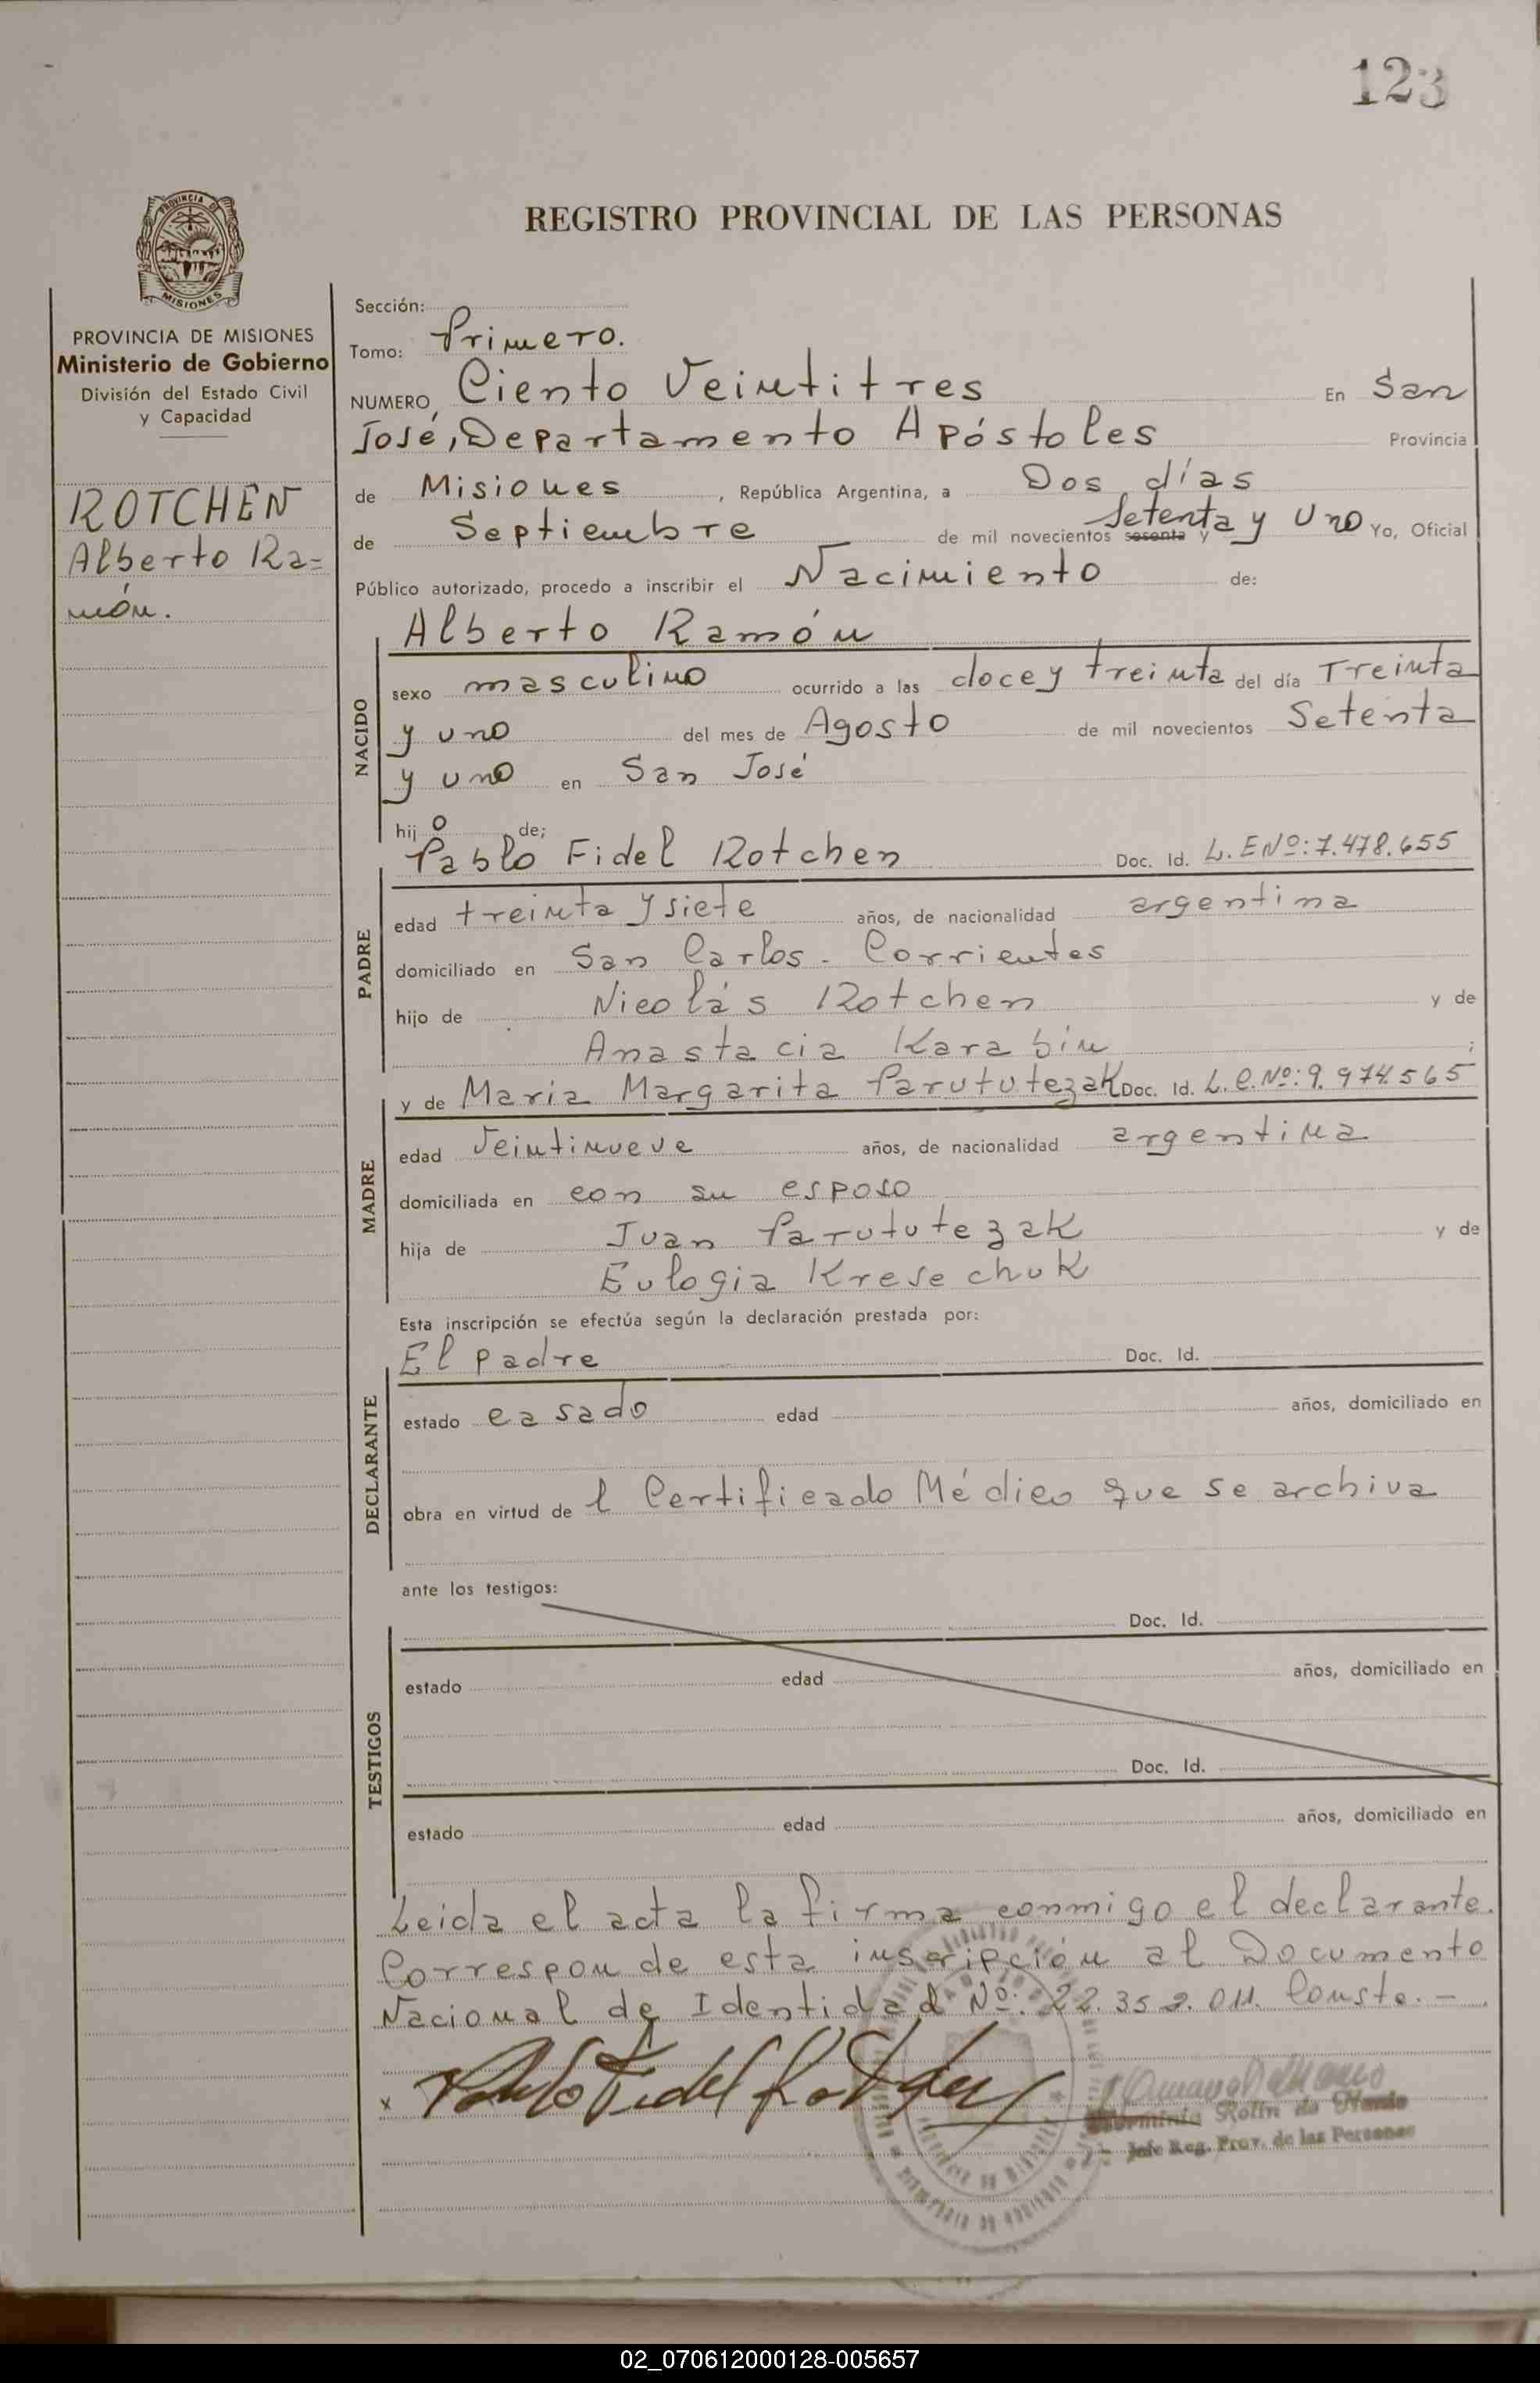 123
REGISTRO PROVINCIAL DE LAS PERSONAS
PROVINCIA DE MISIONES
PROVINCIA DE MISIONES
Ministerio de Gobierno
División del Estado Civil
y Capacidad
ROTCHEN
Alberto Ra=
món.
Sección:
Tomo: Primero.
NUMERO, Ciento Veintitres En San
José, Departamento Apóstoles Provincia
de Misiones, República Argentina, a Dos días
de Septiembre de mil novecientos sesenta y Setenta y Uno Yo, Oficial
Público autorizado, procedo a inscribir el Nacimiento de:
NACIDO
Alberto Ramón
sexo masculino ocurrido a las doce y treinta del día Treinta
y uno del mes de Agosto de mil novecientos Setenta
y uno en San José
hijo de;
PADRE
Pablo Fidel Rotchen Doc. Id. L. E Nº: 7.478.655
edad treinta y siete años, de nacionalidad argentina
domiciliado en San Carlos - Corrientes
hijo de Nicolás Rotchen y de
Anastacia Karabin ;
MADRE
y de Maria Margarita Parututezak Doc. Id. L. C. Nº: 9.974.565
edad Veintinueve años, de nacionalidad argentina
domiciliada en con su esposo
hija de Juan Parututezak y de
Eulogia Kresechuk
Esta inscripción se efectúa según la declaración prestada por:
DECLARANTE
El padre Doc. Id.
estado casado edad años, domiciliado en
obra en virtud de l Certificado Médico que se archiva
ante los testigos:
TESTIGOS
Doc. Id.
estado edad años, domiciliado en
Doc. Id.
estado edad años, domiciliado en
Leida el acta la firma conmigo el declarante.
Corresponde esta inscripción al Documento
Nacional de Identidad Nº: 22.352.011. Conste. -
x Pablo Fidel Rotchen
Rolin de
Jefe Reg. Prov. de las Personas
02_070612000128-005657